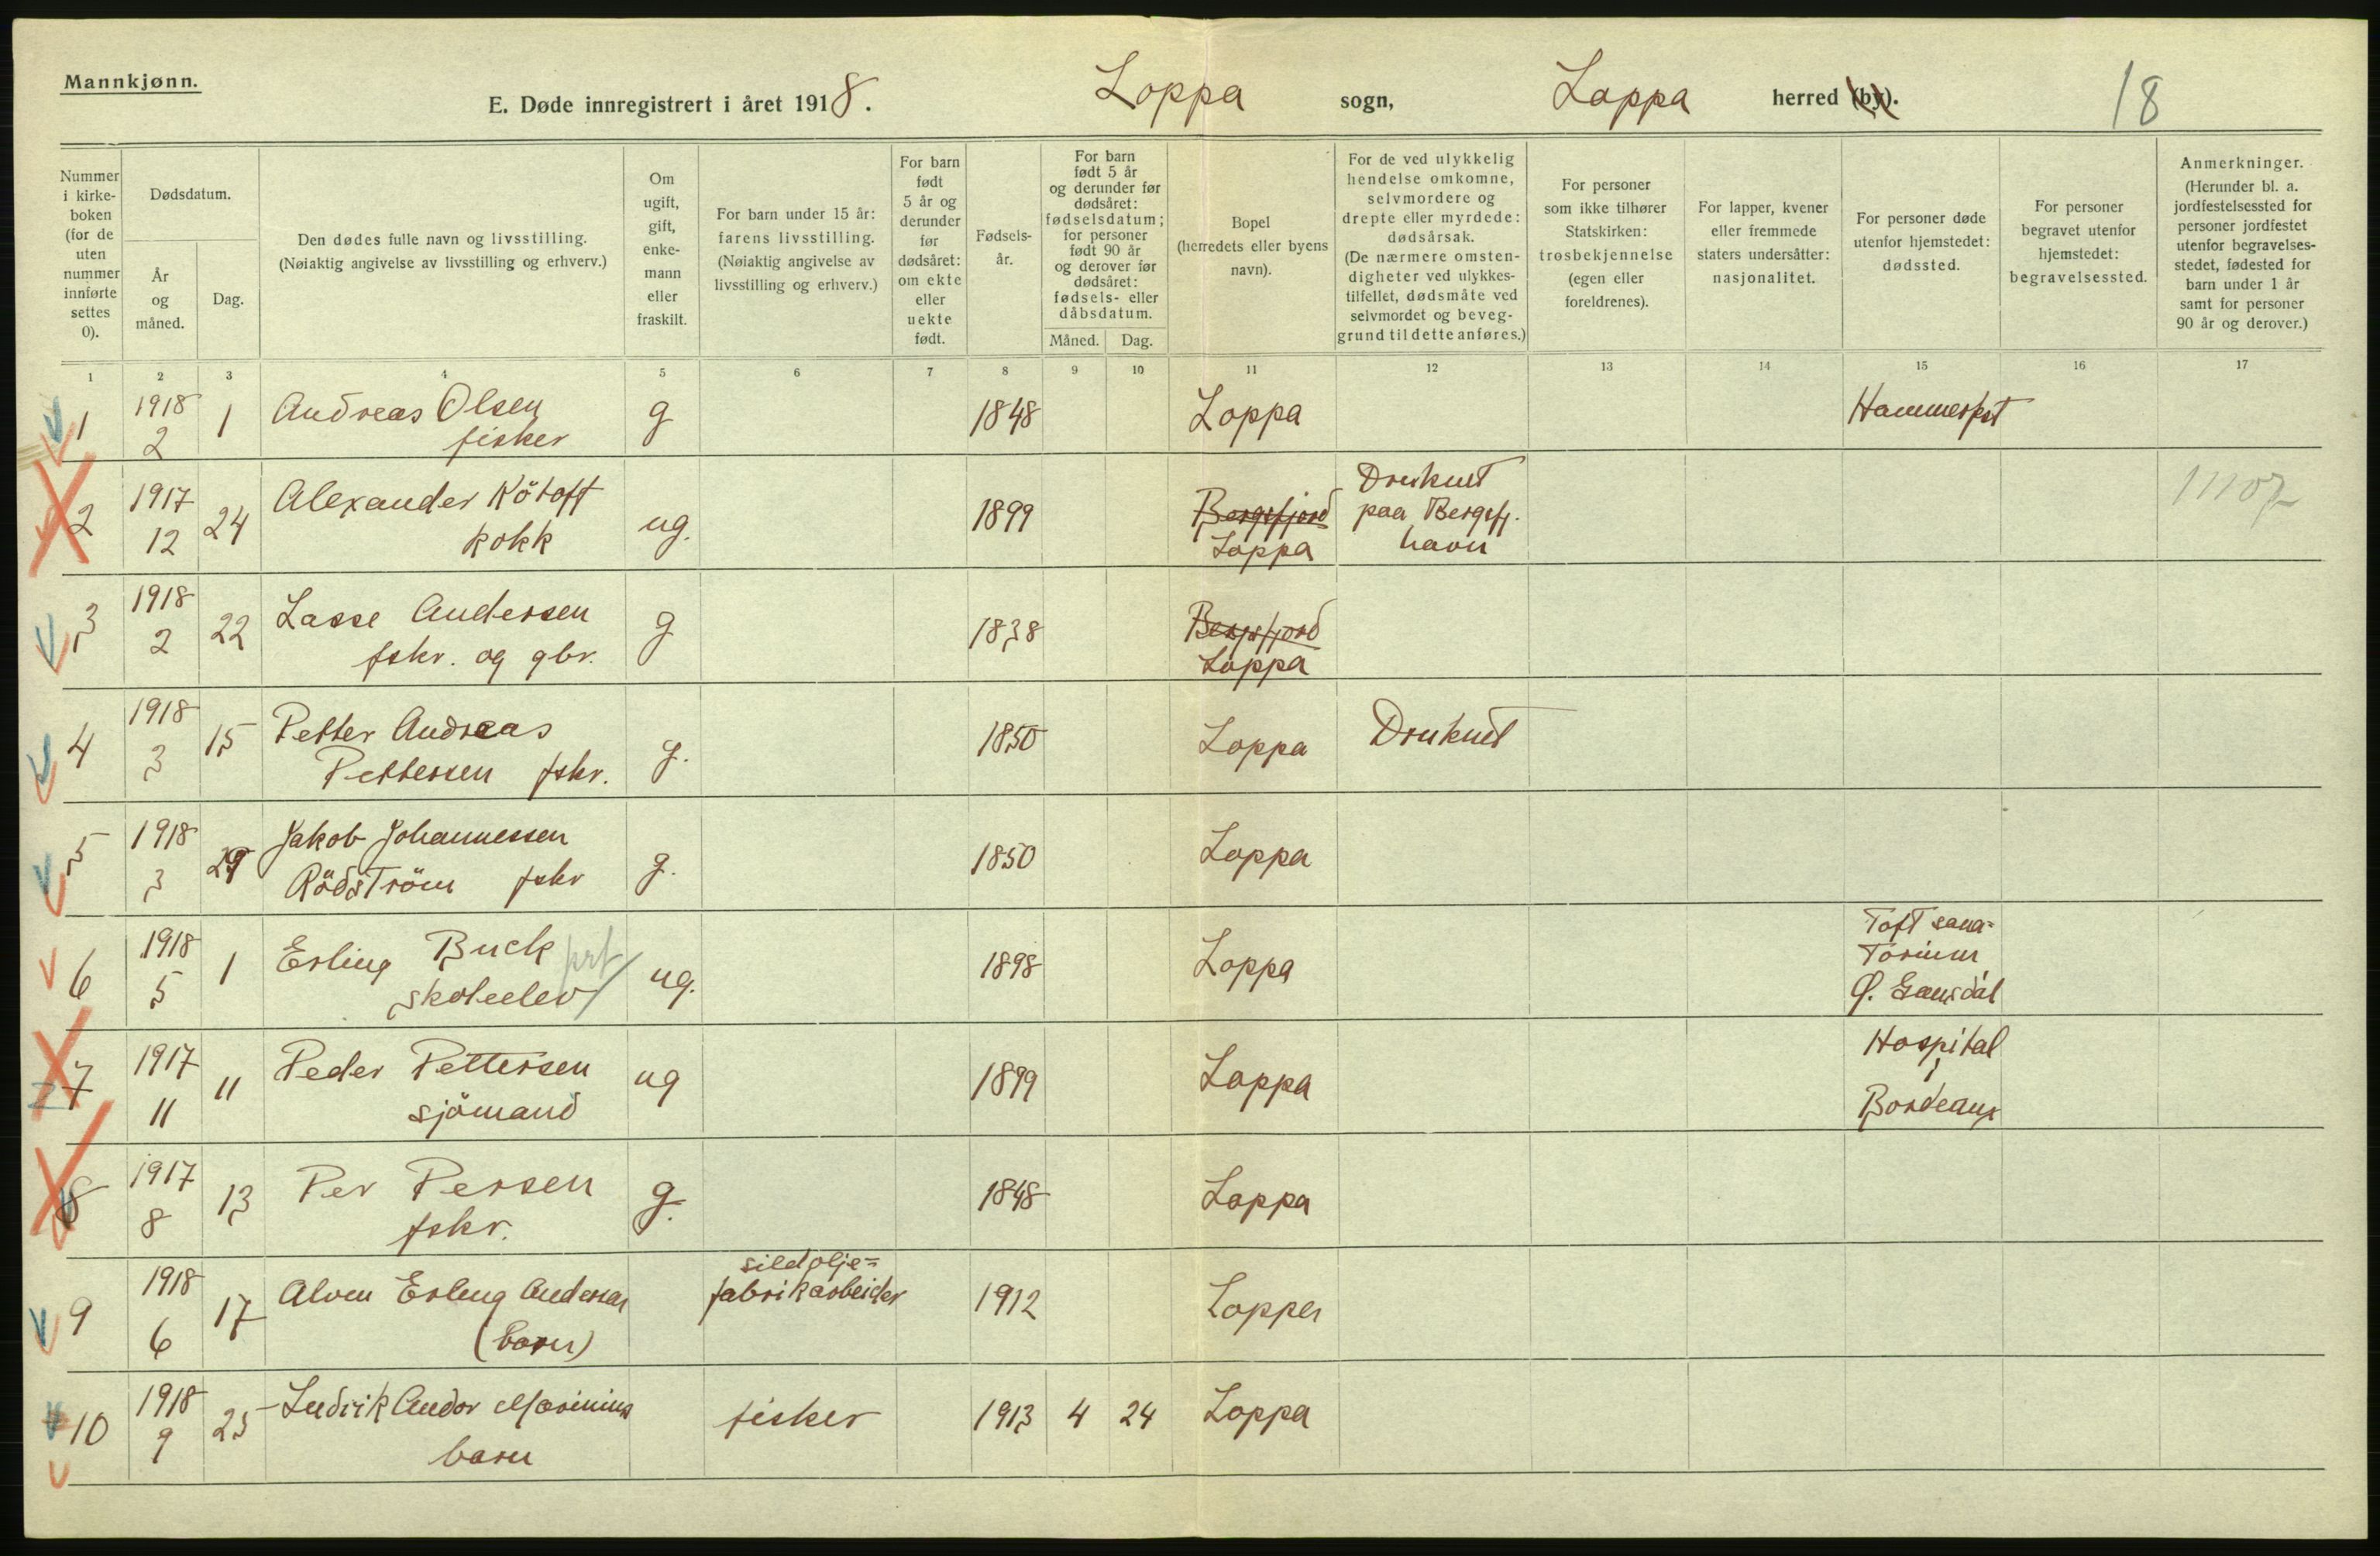 Mannkjønn.
E. Døde innregistrert i året 1918. Loppa sogn, Loppa herred (by). 18
Nummer i kirkeboken (for de uten nummer innførte settes 0).
Dødsdatum.
År og måned.
Dag.
Den dødes fulle navn og livsstilling.
(Nøiaktig angivelse av livsstilling og erhverv.)
Om ugift, gift, enkemann eller fraskilt.
For barn under 15 år: farens livsstilling. (Nøiaktig angivelse av livsstilling og erhverv.)
For barn født 5 år og derunder før dødsåret: om ekte eller uekte født.
Fødselsår.
For barn født 5 år og derunder før dødsåret: fødselsdatum; for personer født 90 år og derover før dødsåret: fødsels- eller dåbsdatum.
Måned. Dag.
Bopel (herredets eller byens navn).
For de ved ulykkelig hendelse omkomne, selvmordere og drepte eller myrdede: dødsårsak. (De nærmere omstendigheter ved ulykkestilfellet, dødsmåte ved selvmordet og beveggrund til dette anføres.)
For personer som ikke tilhører Statskirken: trosbekjennelse (egen eller foreldrenes).
For lapper, kvener eller fremmede staters undersåtter: nasjonalitet.
For personer døde utenfor hjemstedet: dødssted.
For personer begravet utenfor hjemstedet: begravelsessted.
Anmerkninger. (Herunder bl. a. jordfestelsessted for personer jordfestet utenfor begravelsesstedet, fødested for barn under 1 år samt for personer 90 år og derover.)
1 2 3 4 5 6 7 8 9 10 11 12 13 14 15 16 17
1 1918 2 1 Andreas Olsen fisker g 1848 Loppa Hammerfest
2 1917 12 24 Alexander Kötoff kokk ug. 1899 Bergsfjord Loppa Druknet paa Bergsfj. havn 11107
3 1918 2 22 Lasse Andersen fskr. og gbr. g 1838 Bergsfjord Loppa
4 1918 3 15 Petter Andreas Pettersen fskr. g. 1850 Loppa Druknet
5 1918 3 29 Jakob Johannessen Rödström fskr g. 1850 Loppa
6 1918 5 1 Erling Buck skoleelev ug. 1898 Loppa Toft sana= torium Ø. Gausdal
7 1917 11 11 Peder Pettersen sjömand ug 1899 Loppa Hospital i Bordeaux
8 1917 8 13 Per Persen fskr. g. 1848 Loppa
9 1918 6 17 Erling Andersen (barn) sildolje= fabrikarbeider 1912 Loppa
10 1918 9 25 Ludvik Andor Marinius barn fisker 1913 4 24 Loppa